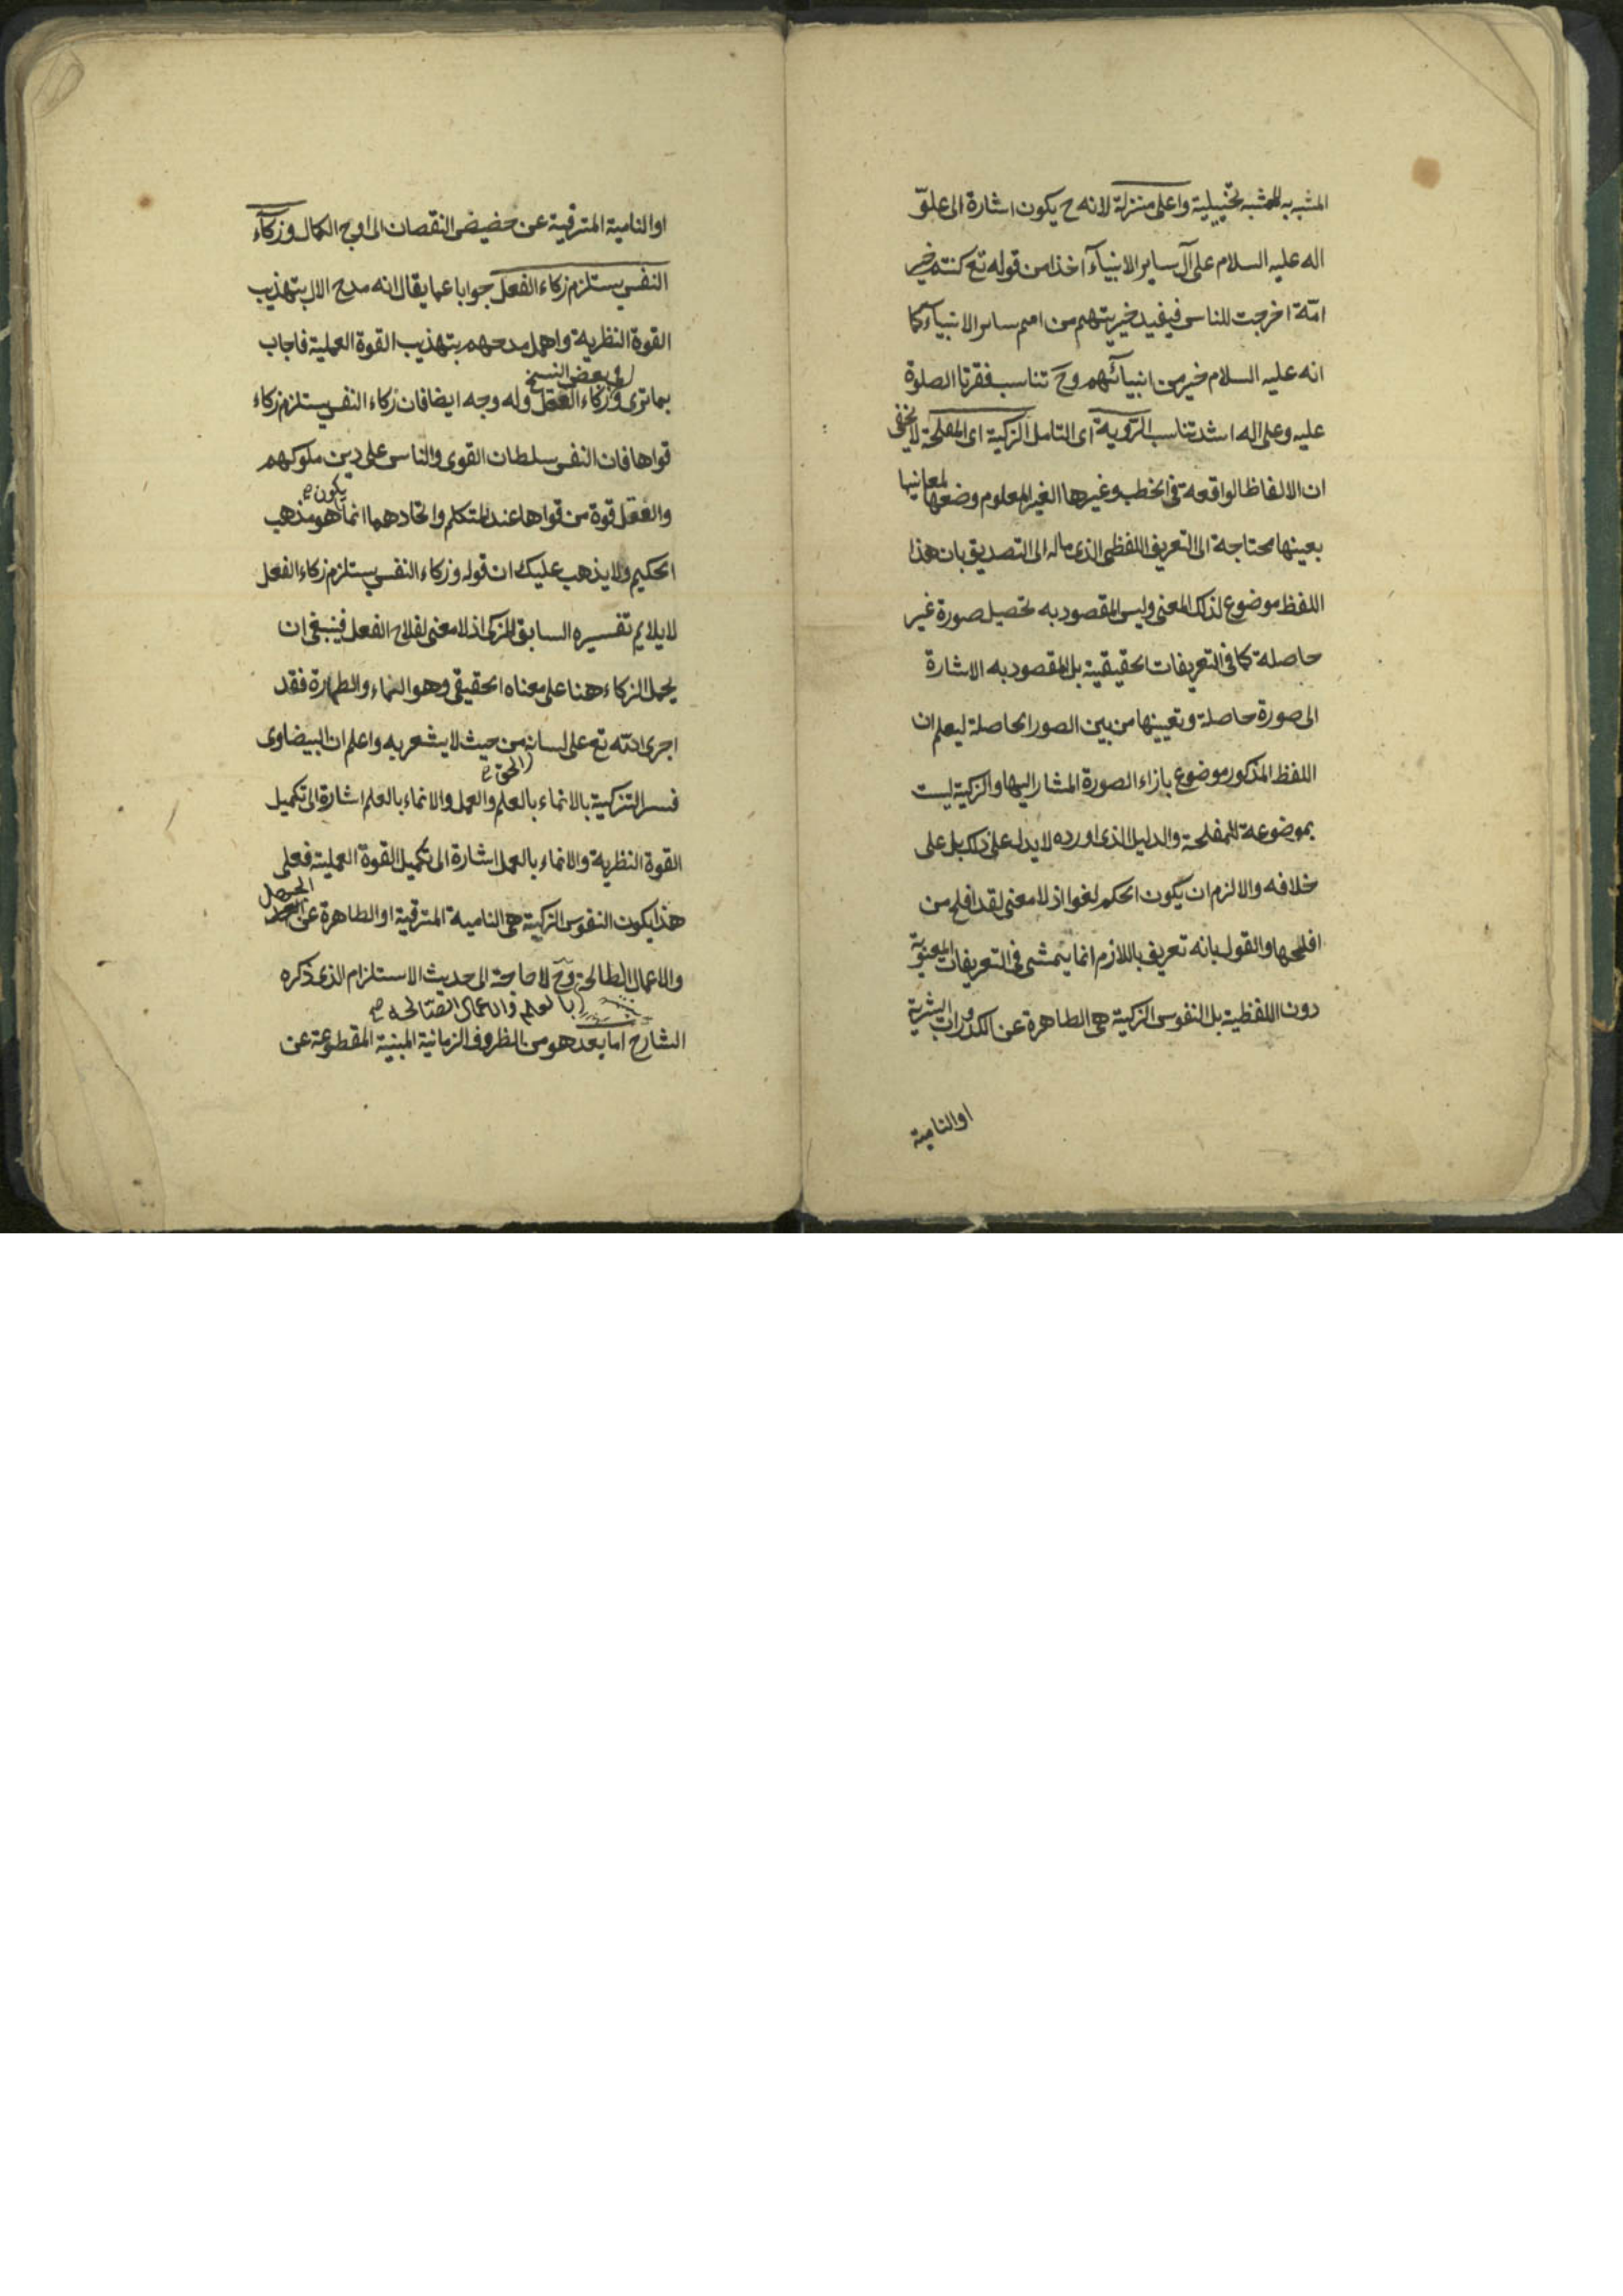 المشبه به للمشبه تخييلية واعلى منزلة لانه ح يكون اشارة الى علوّ
اله عليه السلام على آل ساير الانبيآء اخذا من قوله تع كنتم خير
امّة اخرجت للناس فيفيد خيريتهم من امم ساير الانبيآء كما
انه عليه السلام خير من انبيآئهم وح تناسب فقرتا الصلوة
عليه وعلى اله اشد تناسب الرّوية اى التامل الزكية اى المفلحة لا يخفى
ان الالفاظ الواقعة فى الخطب وغيرها الغير المعلوم وضعها لمعانيها
بعينها محتاجة الى التعريف اللفظى الذى ماله الى التصديق بان هذا
اللفظ موضوع لذلك المعنى وليس المقصود به تحصيل صورة غير
حاصلة كما فى التعريفات الحقيقية بل المقصود به الاشارة
الى صورة حاصلة وتعيينها من بين الصور الحاصلة ليعلم ان
اللفظ المذكور موضوع بازاء الصورة المشار اليها والزكية ليست
بموضوعة للمفلحة والدليل الذى اورده لا يدل على ذلك بل على
خلافه والا لزم ان يكون الحكم لغوا اذ لا معنى لقد افلح من
افلحها والقول بانه تعريف باللازم انما يتمشى فى التعريفات المعنوية
دون اللفظية بل النفوس الزكية هى الطاهرة عن الكدورات البشرية
او النامية
او النامية المترقية عن حضيض النقصان الى اوج الكمال وزكآء
النفس يستلزم زكاء الفعل جوابا عما يقال انه مدح الال بتهذيب
القوة النظرية واهمل مدحهم بتهذيب القوة العملية فاجاب
وفى بعض النسخ
بما ترى وزكاء العقل وله وجه ايضا فان زكاء النفس يستلزم زكاء
قواها فان النفس سلطان القوى والناس على دين ملوكهم
يكون
والعقل قوة من قواها عند المتكلم واتحادهما انما هو مذهب
الحكيم ولا يذهب عليك ان قوله وزكاء النفس يستلزم زكاء الفعل
لا يلايم تفسيره السابق للزكى اذ لا معنى لفلاح الفعل فينبغى ان
يحمل الزكاء هنا على معناه الحقيقى وهو النماء والطهارة فقد
اجرى الله تع على لسانه من حيث لا يشعر به واعلم ان البيضاوى
الحق
فسر التزكية بالانماء بالعلم والعمل والانماء بالعلم اشارة الى تكميل
القوة النظرية والانماء بالعمل اشارة الى تكميل القوة العملية فعلى
الجهل
هذا يكون النفوس الزكية هى النامية المترقية او الطاهرة عن
والاعمال الطالحة وح لا حاجة الى حديث الاستلزام الذى ذكره
بالعلم والاعمال الصالحة
الشارح اما بعد هو من الظروف الزمانية المبنية المقطوعة عن